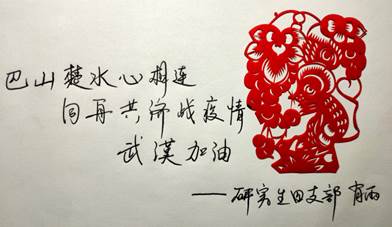 巴山楚水心相连
同舟共济战疫情
武漢加油
——研究生团支部 肖雨